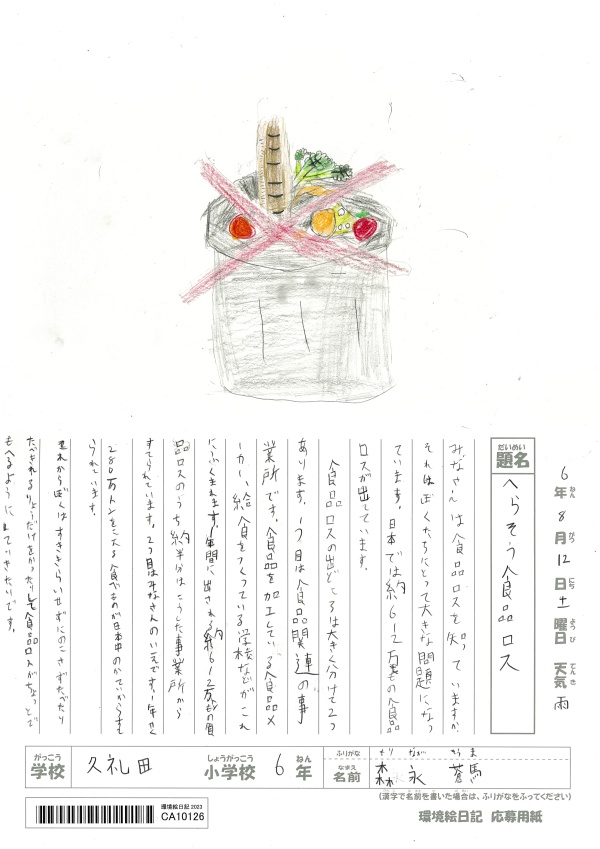 6年8月12日土曜日 天気 雨
ねん がつ にち ようび てんき
だいめい
題名
へらそう食品ロス
みなさんは食品ロスを知っていますか。
それはぼくたちにとって大きな問題になっ
ています。日本では約612万tもの食品
ロスが出ています。
食品ロスの出どころは大きく分けて2つ
あります。1つ目は食品関連の事
業所です。食品を加工している食品メ
ーカー、給食をつくっている学校などがこれ
にふくまれます。1年間に出される約612万tもの食
品ロスのうち約半分はこうした事業所から
すてられています。2つ目はみなさんのいえです。1年かん
で280万トンをこえる食べものが日本中のかていからすて
られています。
これからぼくはすききらいせずにのこさずたべたり
たべきれるりょうだけをかったりして食品ロスがちょっとで
もへるようにしていきたいです。
がっこう
学校
久礼田
しょうがっこう
小学校
6
ねん
年
ふりがな
もり なが そう ま
なまえ
名前
森 永 蒼馬
(漢字で名前を書いた場合は、ふりがなをふってください)
環境絵日記 2023
CA10126
環境絵日記 応募用紙